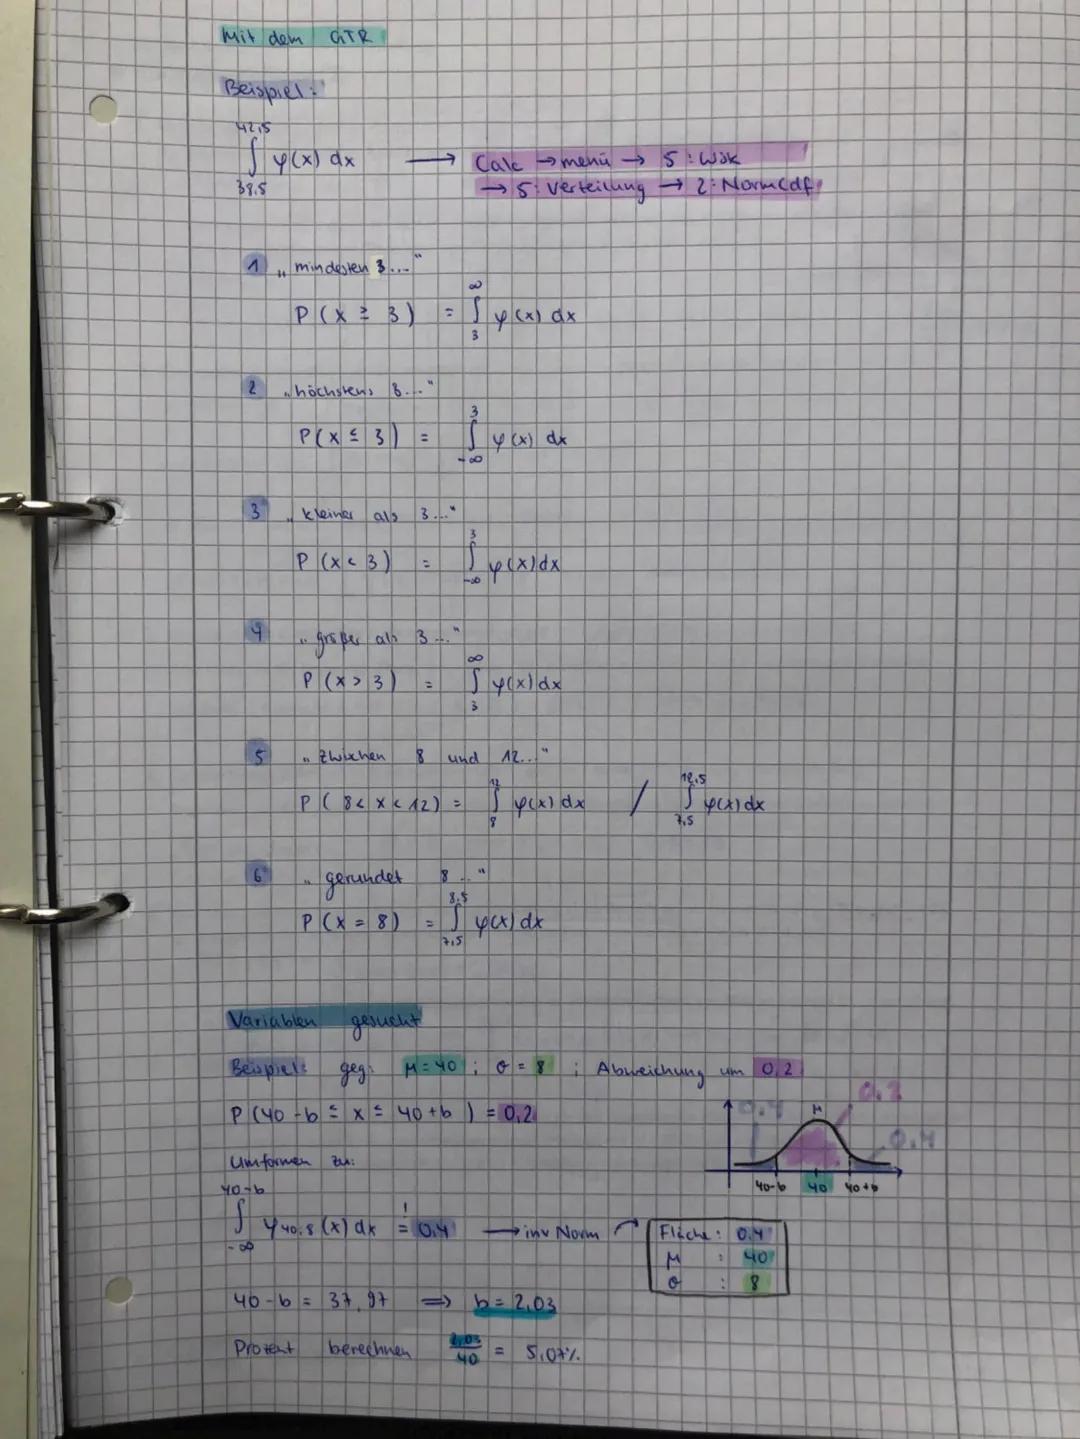 Mit dem GTR
Beispiel:
42,5
∫ φ(x) dx → Calc → menü → 5: Wsk
38,5 → 5: Verteilung → 2: Normcdf
1 „mindesten 3..."
P(x ≥ 3) = ∫ φ(x) dx
∞
3
2 „höchstens 3..."
P(x ≤ 3) = ∫ φ(x) dx
3
-∞
3 „kleiner als 3..."
P(x < 3) = ∫ φ(x) dx
3
-∞
4 „größer als 3..."
P(x > 3) = ∫ φ(x) dx
∞
3
5 „zwischen 8 und 12..."
P(8 < x < 12) = ∫ φ(x) dx / ∫ φ(x) dx
12 12,5
8 7,5
6 „gerundet 8..."
P(x = 8) = ∫ φ(x) dx
8,5
7,5
Variablen gesucht
Beispiel: geg: μ = 40 ; σ = 8 ; Abweichung um 0,2
P(40-b ≤ x ≤ 40+b) = 0,2
0.4 μ 0.2 0.4
40-b 40 40+b
Umformen zu:
40-b
∫ φ40,8(x) dx = 0,4 → inv Norm
!
-∞
Fläche: 0,4
μ : 40
σ : 8
40-b = 37,97 ⇒ b = 2,03
Prozent berechnen 2,03/40 = 5,07%